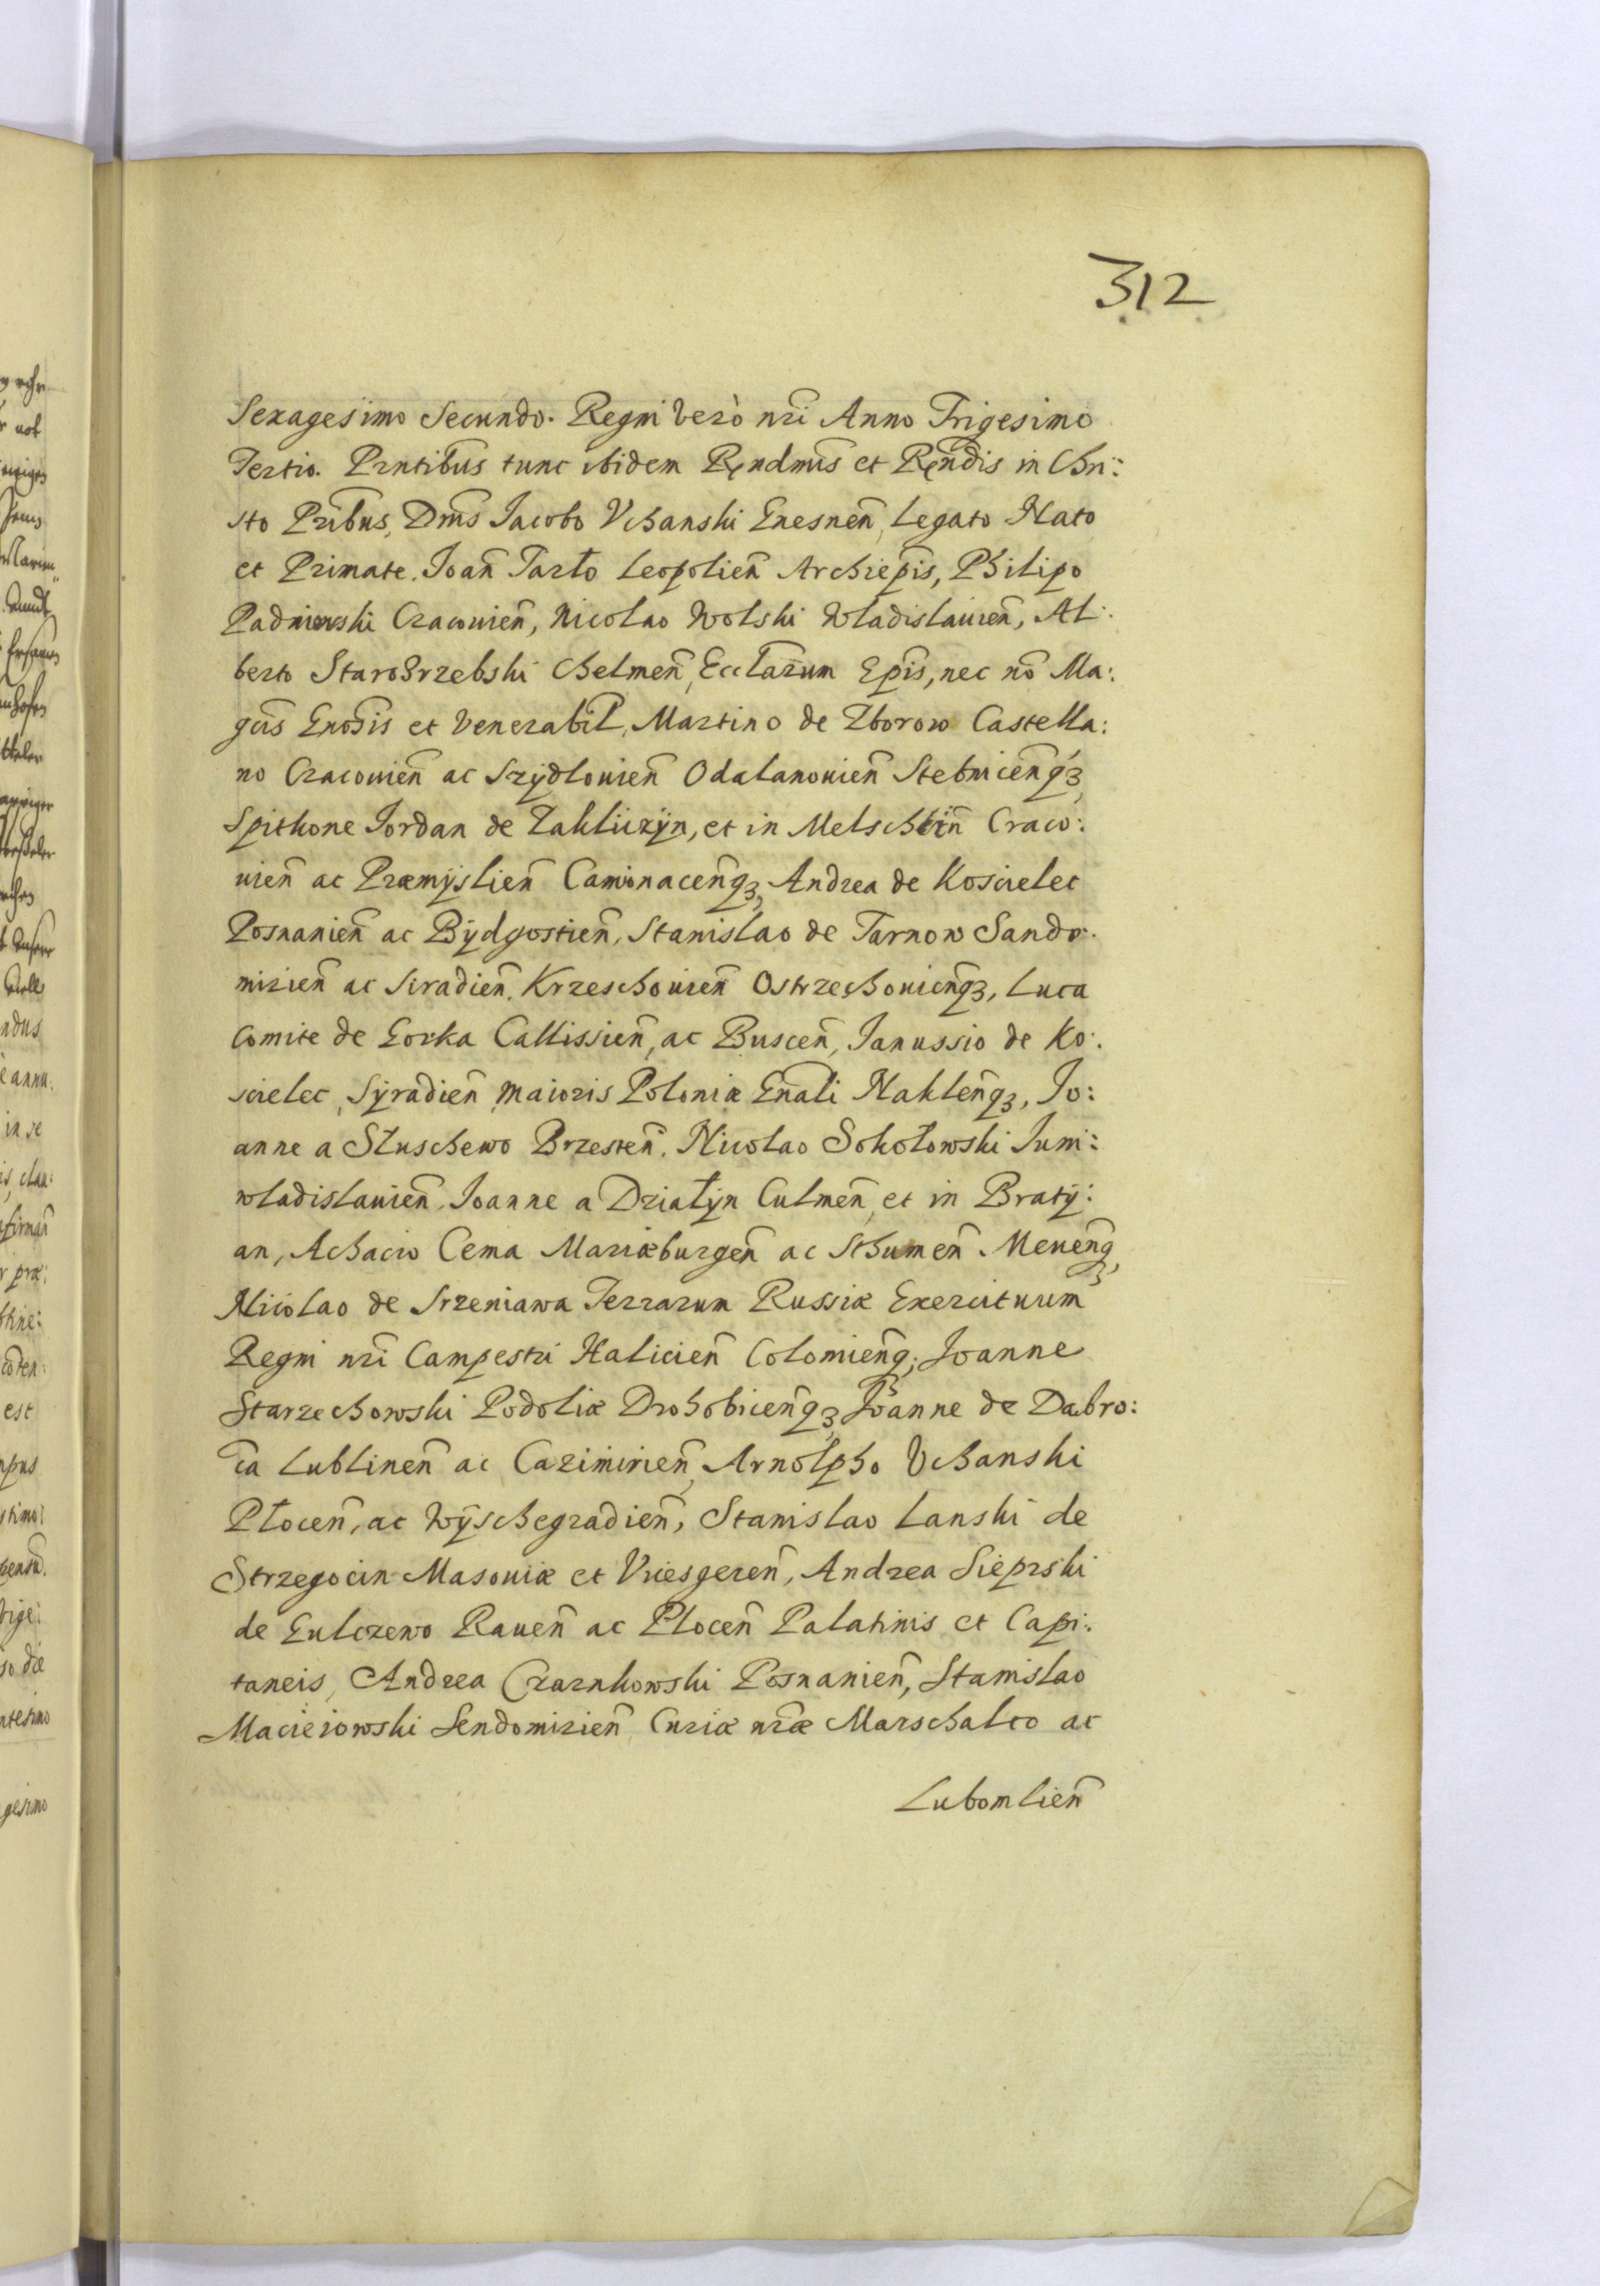 312
Sexagesimo Secundo. Regni verò nr̃i Anno Trigesimo
Tertio. Pr̃ntibus tunc ibidem Rẽndmis et Rẽndis in Chri:
sto Pr̃ibus, Dm̃s Jacobo Vchanski Gnesnen̄, Legato Nato
et Primate. Joan̄ Tarło Leopolien̄ Archiep̃is, Philipo
Padniewski Cracouien̄, Nicolao Wolski Wladislauien̄, Al:
berto Starozrzebski Chelmen̄, Eccl̃arum Ep̃is, nec nō Ma:
gcis Gñosis et Venerabil̃, Martino de Zborow Castella:
no Cracouien̄ ac Szÿdlouien̄ Odalanouien̄ Stebnicen̄qꝫ,
Spithone Jordan de Zakliczÿn, et in Melschtin̄ Craco:
uien̄ ac Præmÿslien̄ Camionacen̄qꝫ, Andrea de Koscielec
Posnanien̄ ac Bÿdgostien̄, Stanislao de Tarnow Sando:
mirien̄ ac Siradien̄. Krzeschouien̄ Ostrzeschouien̄qꝫ, Luca
Comite de Gorka Callissien̄, ac Buscen̄, Janussio de Ko:
scielec, Sÿradien̄ Maioris Poloniæ Gñali Naklen̄qꝫ, Jo:
anne a Słuschewo Brzesten̄. Nicolao Sokołowski Juni:
wladislauien̄. Joanne a Działÿn Culmen̄, et in Bratÿ:
an, Achacio Cema Mariæburgen̄ ac Sthumen̄ Meuen̄qꝫ,
Nicolao de Srzeniawa Terrarum Russiæ Exercituum
Regni nr̃i Campestri Halicien̄ Colomien̄qꝫ, Joanne
Starzechowski Podoliæ Drohobicen̄qꝫ, Joanne de Dabro:
c̄a Lublinen̄ ac Cazimirien̄, Arnolpho Vchanski
Płocen̄, ac Wÿschegradien̄, Stanislao Lanski de
Strzegocin Masouiæ et Vriesgeren̄, Andrea Sieprski
de Gulczewo Rauen̄ ac Plocen̄ Palatinis et Capi:
taneis, Andrea Czarnkowski Posnanien̄, Stanislao
Macieiowski Sendomirien̄ Curiæ nr̃æ Marschalco ac
Lubomlien̄